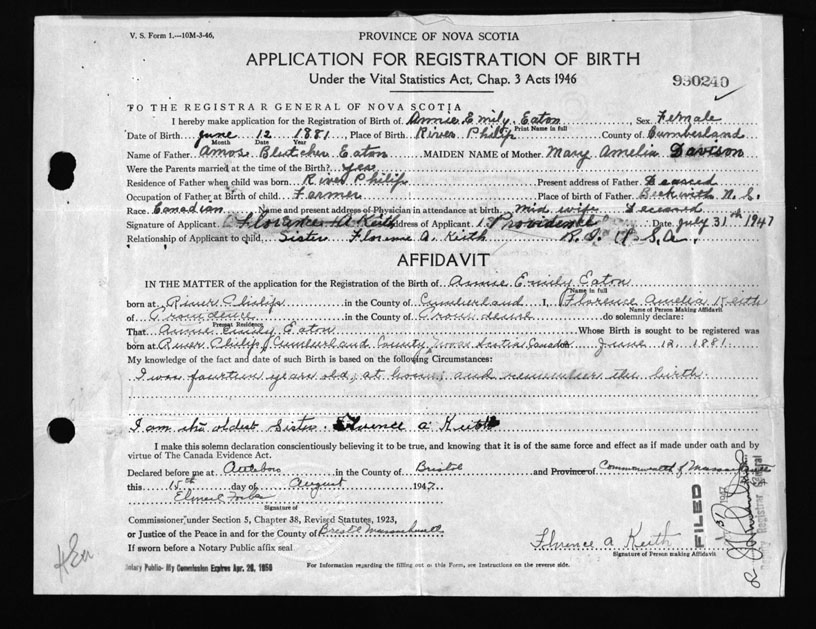 V. S. Form 1.—10M-3-46,
PROVINCE OF NOVA SCOTIA
APPLICATION FOR REGISTRATION OF BIRTH
Under the Vital Statistics Act, Chap. 3 Acts 1946
930240
TO THE REGISTRAR GENERAL OF NOVA SCOTIA
I hereby make application for the Registration of Birth of Annie Emily Eaton, Sex Female
Print Name in full
Date of Birth June 12 1881, Place of Birth River Philip County of Cumberland
Month Day Year
Name of Father Amos Blutcher Eaton MAIDEN NAME of Mother Mary Amelia Davison
Were the Parents married at the time of the Birth? yes
Residence of Father when child was born River Philip Present address of Father Deceased
Occupation of Father at Birth of child Farmer Place of birth of Father Beckwith N.S.
Race Canadian Name and present address of Physician in attendance at birth mid wife Deceased
Signature of Applicant Florence A Keith Address of Applicant Providence Date July 31th 1947
Relationship of Applicant to child, Sister Florence A. Keith R.I. U.S.A.
AFFIDAVIT
IN THE MATTER of the application for the Registration of the Birth of Annie Emily Eaton
Name in full
born at River Philip in the County of Cumberland I, Florence Amelia Keith
Name of Person Making Affidavit
of Providence in the County of Providence do solemnly declare:
Present Residence
That Annie Emily Eaton Whose Birth is sought to be registered was
born at River Philip, Cumberland County, Nova Scotia Canada June 12, 1881.
My knowledge of the fact and date of such Birth is based on the following Circumstances:
I was fourteen years old, at home, and remember the birth.
I am the oldest sister. Florence A. Keith
I make this solemn declaration conscientiously believing it to be true, and knowing that it is of the same force and effect as if made under oath and by
virtue of The Canada Evidence Act.
Declared before me at Attleboro in the County of Bristol and Province of Commonwealth of Massachusetts
this 15th day of August 1947
Signature of
Commissioner under Section 5, Chapter 38, Revised Statutes, 1923,
or Justice of the Peace in and for the County of Bristol Massachusetts
If sworn before a Notary Public affix seal
Florence A Keith
Signature of Person making Affidavit
Notary Public- My Commission Expires Apr. 20,
For Information regarding the filling out of this Form, see Instructions on the reverse side.
FILED
Registrar General